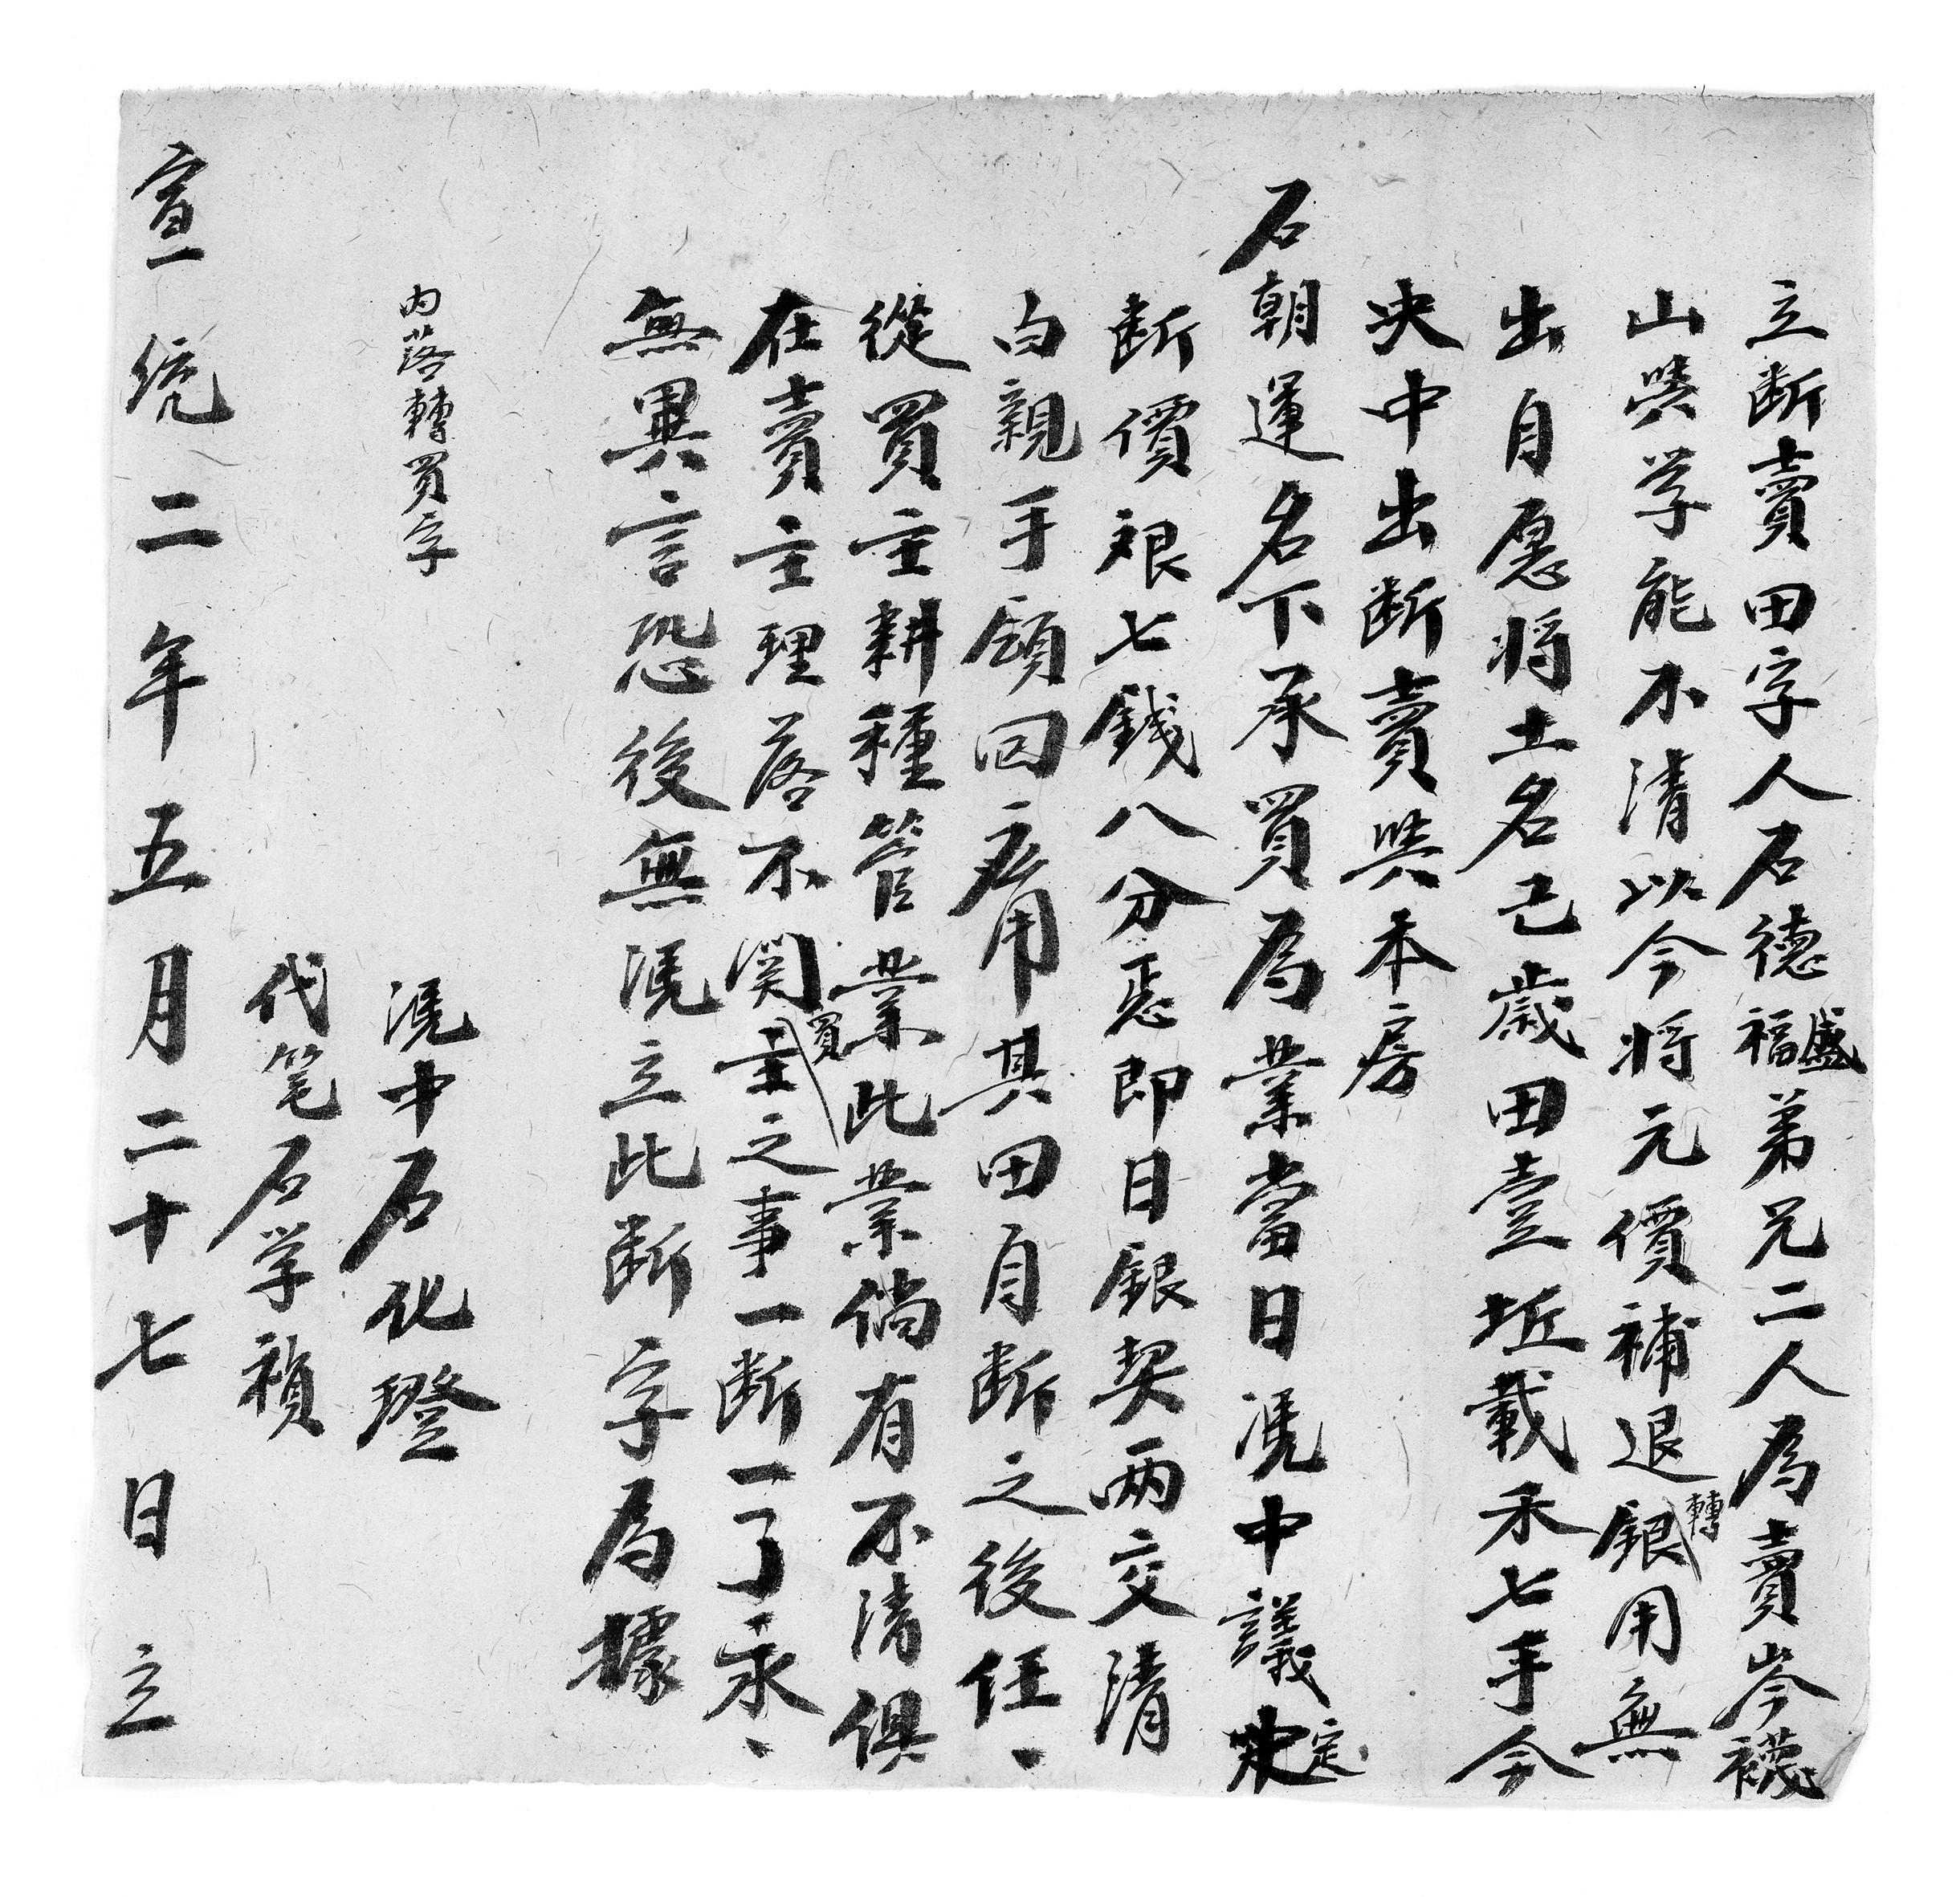 立断賣田字人石德福盛弟兄二人為賣岑襪
山與学能不清以今将元價補退轉銀用無
出自愿将土名己歲田壹坵載禾七手今
央中出断賣與本房
石朝運名下承買為業當日凴中議定
断價艮七錢八分恴即日銀契两交清
白親手領囘應用其田自断之後任、
從買主耕種管業此業倘有不清俱
在賣主理落不関買主之事一断一了永、
無異言恐後無凴立此断字為據
内落轉買字
凴中石化璒
代笔石学禎
宣統二年五月二十七日立